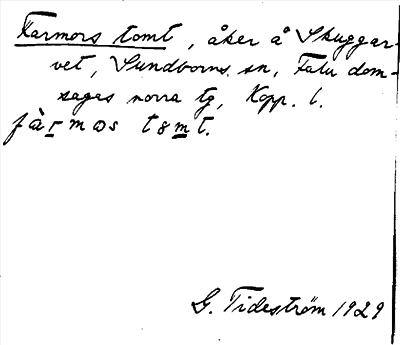 Farmors tomt, åker å Skuggar-
vet, Sundborns sn, Falu dom-
sagas norra tg, Kopp. l.
fàrmos tomt.
G. Tideström 1929